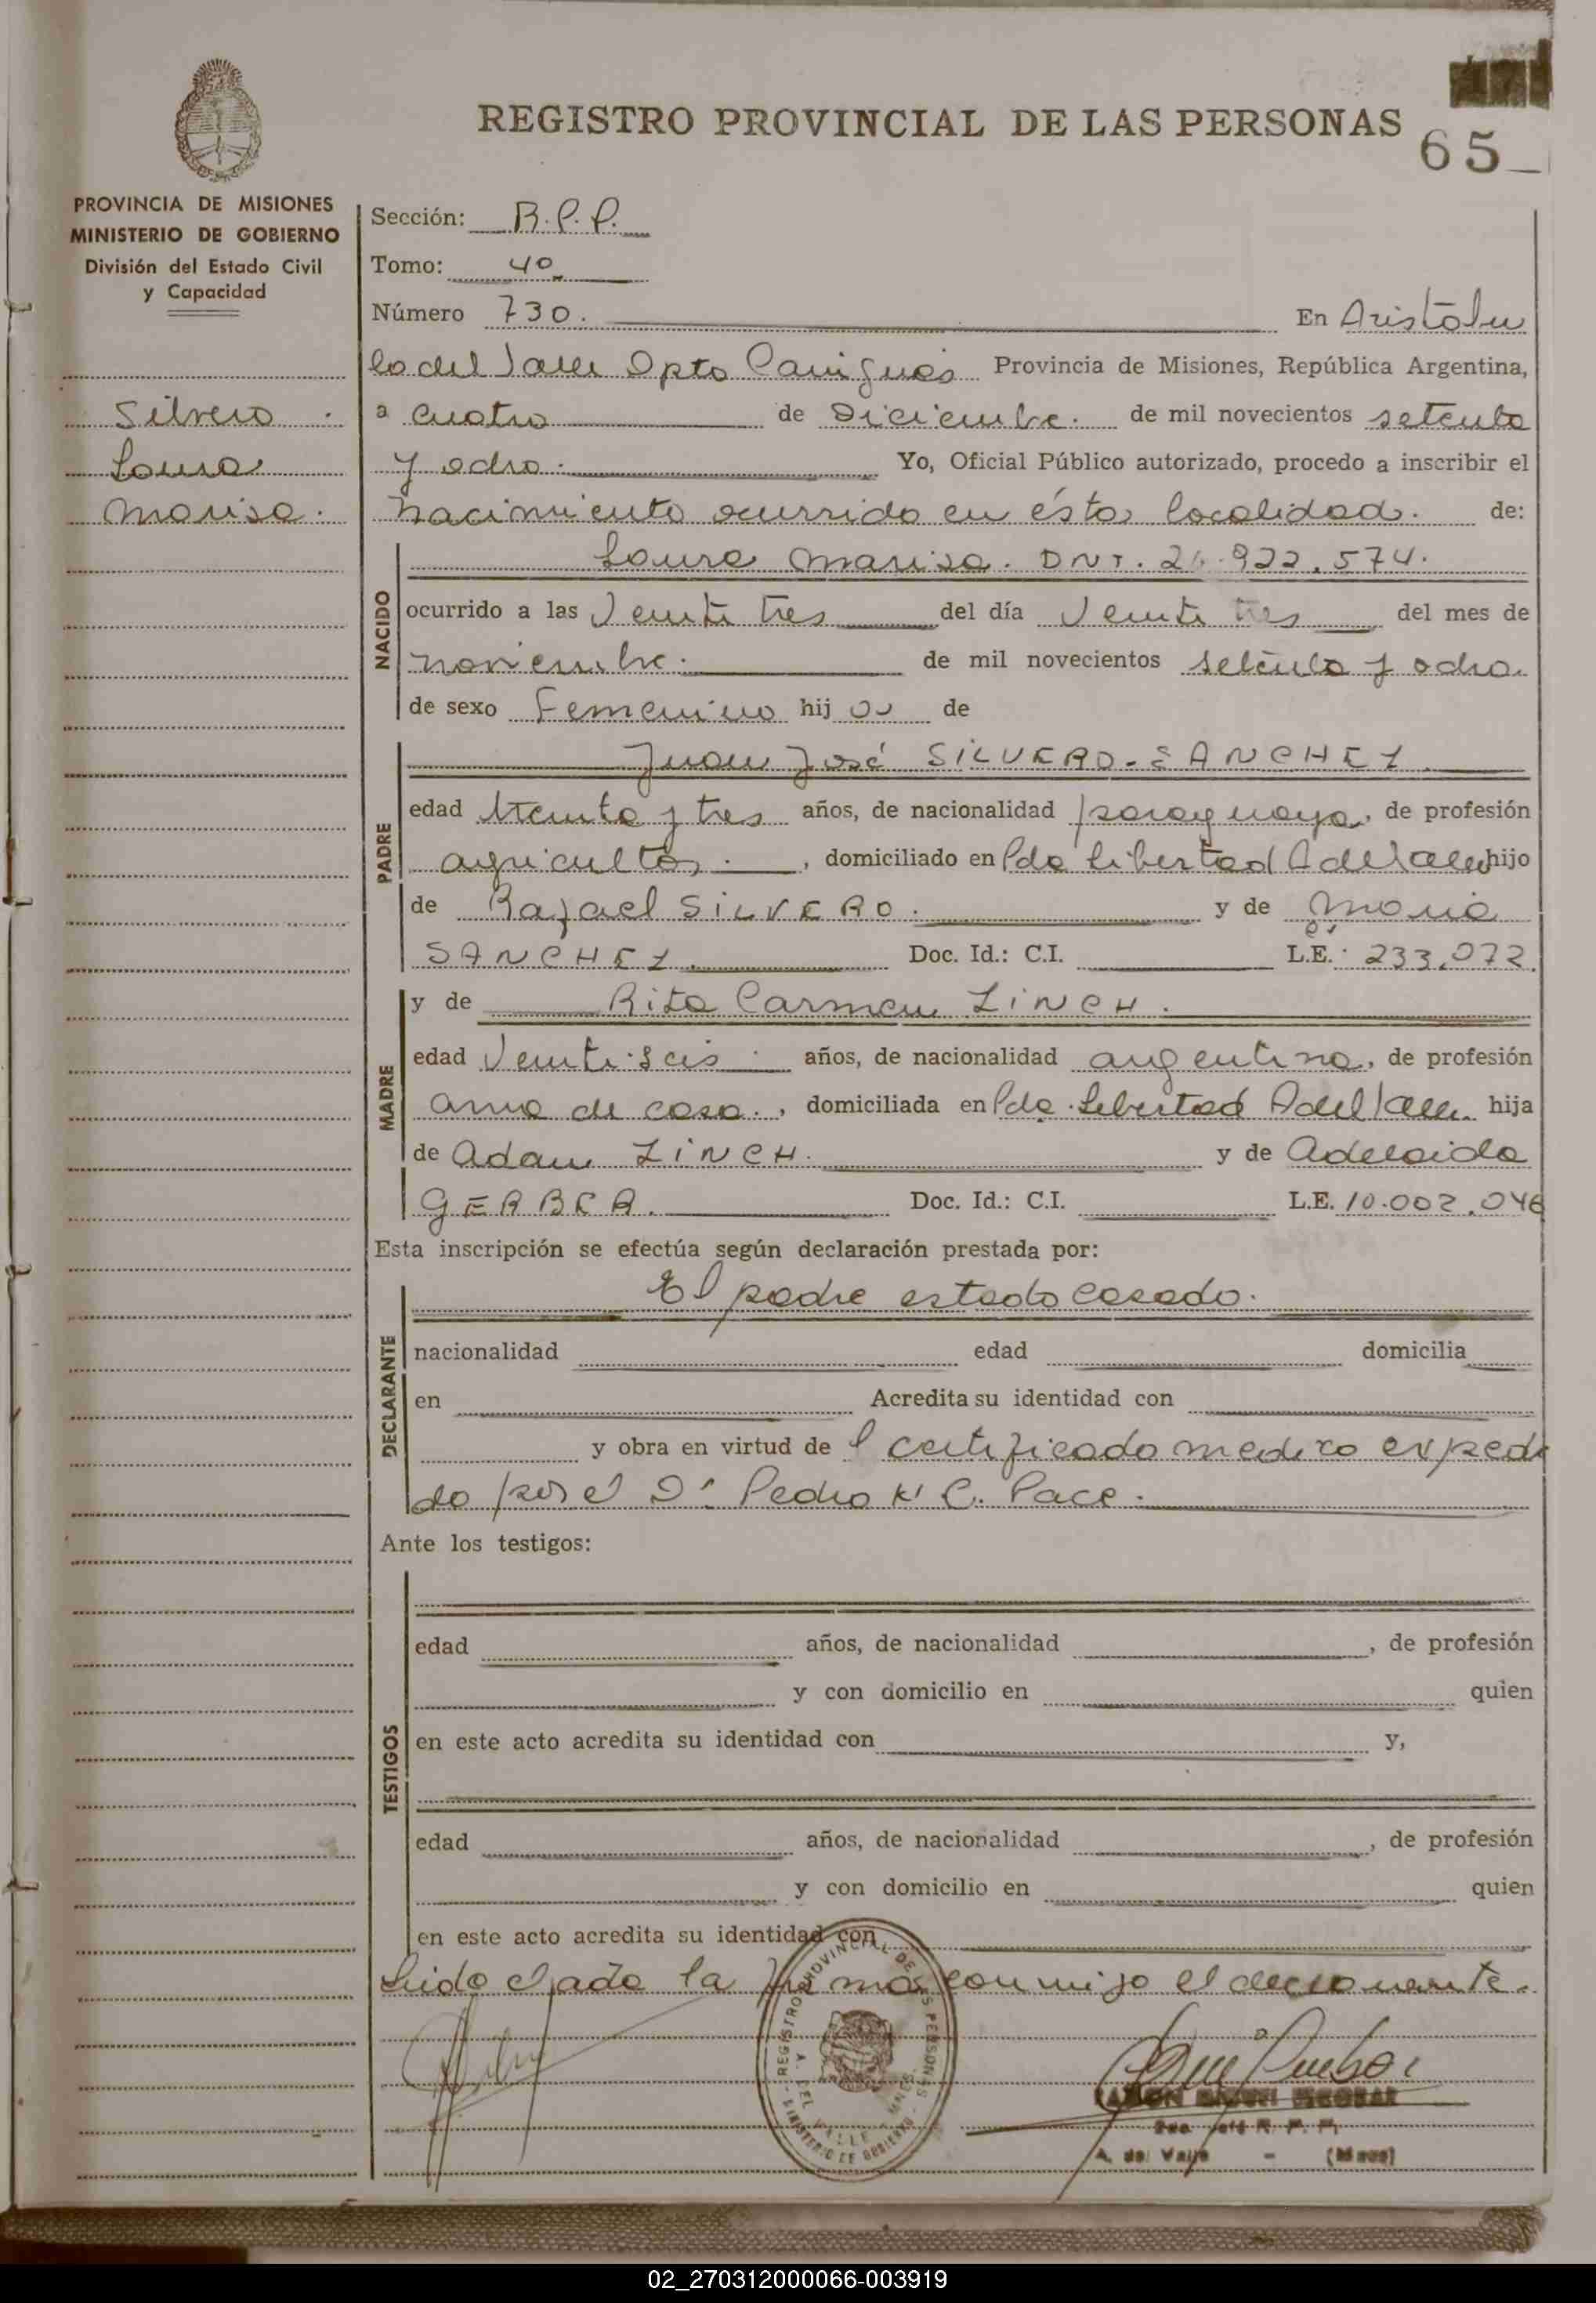 REGISTRO PROVINCIAL DE LAS PERSONAS
65
PROVINCIA DE MISIONES
MINISTERIO DE GOBIERNO
División del Estado Civil
y Capacidad
Silvero
Laura
Marisa.
Sección: R.P.P.
Tomo: 4º
Número 730. En Aristóbu
lo del Valle Dpto Cainguás Provincia de Misiones, República Argentina,
a cuatro de Diciembre. de mil novecientos setenta
y ocho. Yo, Oficial Público autorizado, procedo a inscribir el
nacimiento ocurrido en ésta localidad. de:
NACIDO
Laura Marisa. DNI. 26.922.574.
ocurrido a las Veinti tres del día Veinti tres del mes de
noviembre. de mil novecientos setenta y ocho.
de sexo Femenino hija de
PADRE
Juan José SILVERO-SANCHEZ.
edad treinta y tres años, de nacionalidad paraguaya, de profesión
agricultor., domiciliado en Pda Libertad A del Valle hijo
de Rafael SILVERO. y de Maria
SANCHEZ. Doc. Id.: C.I. L.E.: 233.072.
MADRE
y de Rita Carmen ZINCH.
edad Veinti seis años, de nacionalidad argentina, de profesión
ama de casa., domiciliada en Pda. Libertad A del Valle. hija
de Adam ZINCH. y de Adelaida
GERBER. Doc. Id.: C.I. L.E. 10.002.046
Esta inscripción se efectúa según declaración prestada por:
DECLARANTE
El padre estado casado.
nacionalidad edad domicilia
en Acredita su identidad con
y obra en virtud de l certificado medico expedi
do por el Dr Pedro C. Pace.
Ante los testigos:
TESTIGOS
edad años, de nacionalidad , de profesión
y con domicilio en quien
en este acto acredita su identidad con y,
edad años, de nacionalidad , de profesión
y con domicilio en quien
en este acto acredita su identidad con
Leida el acta la firma conmigo el declarante.
REGISTRO PROVINCIAL DE LAS PERSONAS
A. DEL VALLE MNES.
MINISTERIO DE GOBIERNO
RAMON ESCOBAR
R. P. P.
A. del Valle - (Mnes)
02_270312000066-003919